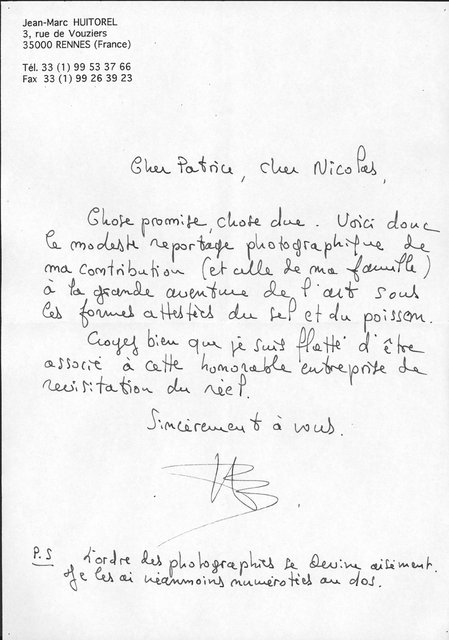 Jean-Marc HUITOREL
3, rue de Vouziers
35000 RENNES (France)
Tél. 33 (1) 99 53 37 66
Fax 33 (1) 99 26 39 23
Cher Patrice, cher Nicolas,
Chose promise, chose due. Voici donc
le modeste reportage photographique de
ma contribution (et celle de ma famille)
à la grande aventure de l'art sous
les formes attestées du sel et du poisson.
Croyez bien que je suis flatté d'être
associé à cette honorable entreprise de
revisitation du réel.
Sincèrement à vous.
P.S L'ordre des photographies se devine aisément.
Je les ai néanmoins numérotées au dos.